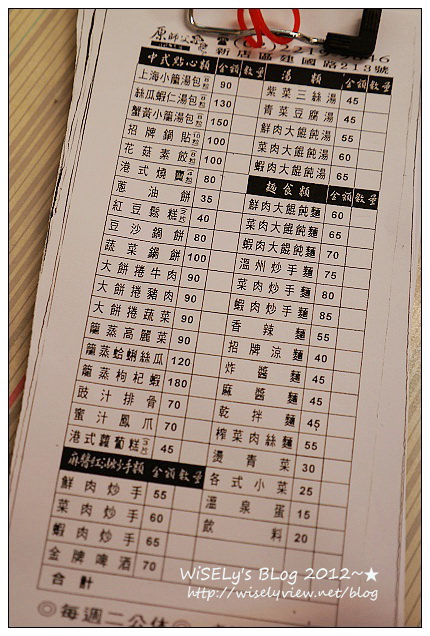 原師父
新店區建國路213號
中式點心類 金額 數量
上海小籠湯包 8粒 90
絲瓜蝦仁湯包 8粒 130
蟹黃小籠湯包 8粒 150
招牌鍋貼 10粒 100
花菇素餃 10粒 100
港式燒賣 80
蔥油餅 35
紅豆鬆糕 40
豆沙鍋餅 80
蔬菜鍋餅 100
大餅捲牛肉 90
大餅捲豬肉 90
大餅捲蔬菜 90
籠蒸高麗菜 90
籠蒸蛤蜊絲瓜 120
籠蒸枸杞蝦 180
豉汁排骨 70
蜜汁鳳爪 70
港式蘿蔔糕 45
麻醬紅油炒手類 金額 數量
鮮肉炒手 55
菜肉炒手 60
蝦肉炒手 65
金牌啤酒 70
合計
湯類 金額 數量
紫菜三絲湯 45
青菜豆腐湯 45
鮮肉大餛飩湯 55
菜肉大餛飩湯 60
蝦肉大餛飩湯 65
麵食類 金額 數量
鮮肉大餛飩麵 60
菜肉大餛飩麵 65
蝦肉大餛飩麵 70
溫州炒手麵 75
菜肉炒手麵 80
蝦肉炒手麵 85
香辣麵 55
招牌涼麵 40
炸醬麵 45
麻醬麵 45
乾拌麵 45
榨菜肉絲麵 55
燙青菜 30
各式小菜 25
溫泉蛋 15
飲料 20
◎每週二公休
WiSELy's BLog 2012~★
http://wiselyview.net/blog